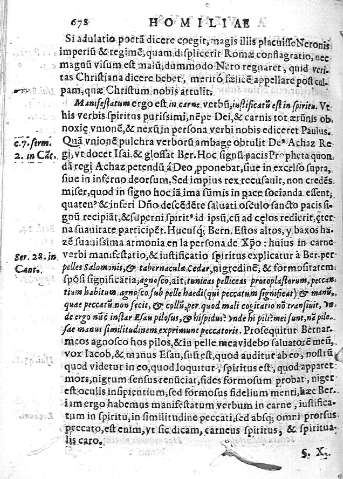 678 HOMILIAE
Si adulatio poetā dicere coegit, magis illis placuisse Neronis
imperiū & regimē, quam displicerit Romæ conflagratio, nec
magnū visum est malū, dummodo Nero regnaret, quid veri-
tas Christiana dicere debet, meritò fælicē appellare post cul-
pam, quæ Christum nobis attulit.
Manifestatum ergo est in carne verbū, iustificatū est in spiritu. Ve
his verbis spiritus purissimi, nēpe Dei, & carnis tot ærūnis ob-
noxię vnionē, & nexū in persona verbi nobis ediceret Paulus.
c. 7. serm. 2. in Cāt.
Quā vnionē pulchra verborū ambage obtulit De' Achaz Regi,
vt docet Isai. & glossat Ber. Hoc signū pacis Propheta quon
dā regi Achaz petendū à Deo, pponebat, siue in excelso supra,
siue in inferno deorsum. Sed impius rex recusauit, non credēs
miser, quod in signo hoc iā ima sūmis in pace socianda essent,
quaten' & inferi Dño descēdēte saluati osculo sancto pacis si-
gnū recipiāt, & superni spirit' id ipsū, cū ad cęlos redierit, ęter-
na suauitate participēt. Hucusq; Bern. Estos altos, y baxos ha-
zē suauissima armonia en la persona de Xpo: huius in carne
Ser. 28. in Cant.
verbi manifestatio, & iustificatio spiritus explicatur à Ber. per
pelles Salomonis, & tabernacula Cedar, nigredinē, & formositatem
spōsi significatia, agnosco, ait, tunicas pelliceas protoplastorum, peccan-
tium habitum agnosco sub pelle hædi (qui peccatum significat) & manū,
quæ peccatū non fecit, & collū, per quod mali cogitatio nō transiuit,
de ergo nūc instar Esau pilosus, & hispidus? vnde hi pili? mei sunt, nō pilo-
sæ manus similitudinem exprimunt peccatoris. Prosequitur Bernar.
meos agnosco hos pilos, & in pelle mea videbo saluatorē meū,
vox Iacob, & manus Esau, sui est, quod auditur ab eo, nostrū
quod videtur in eo, quod loquitur, spiritus est, quod apparet
mors, nigrum sensus renuntiat, fides formosum probat, niger
est oculis insipientium, sed formosus fidelium menti, hæc Ber.
iam ergo habemus manifestatum verbum in carne, iustifica-
tum in spiritu, in similitudine peccati, sed absq; omni prorsus
peccato, est enim, vt sic dicam, carneus spiritus, & spiritua-
lis caro.
§. X.